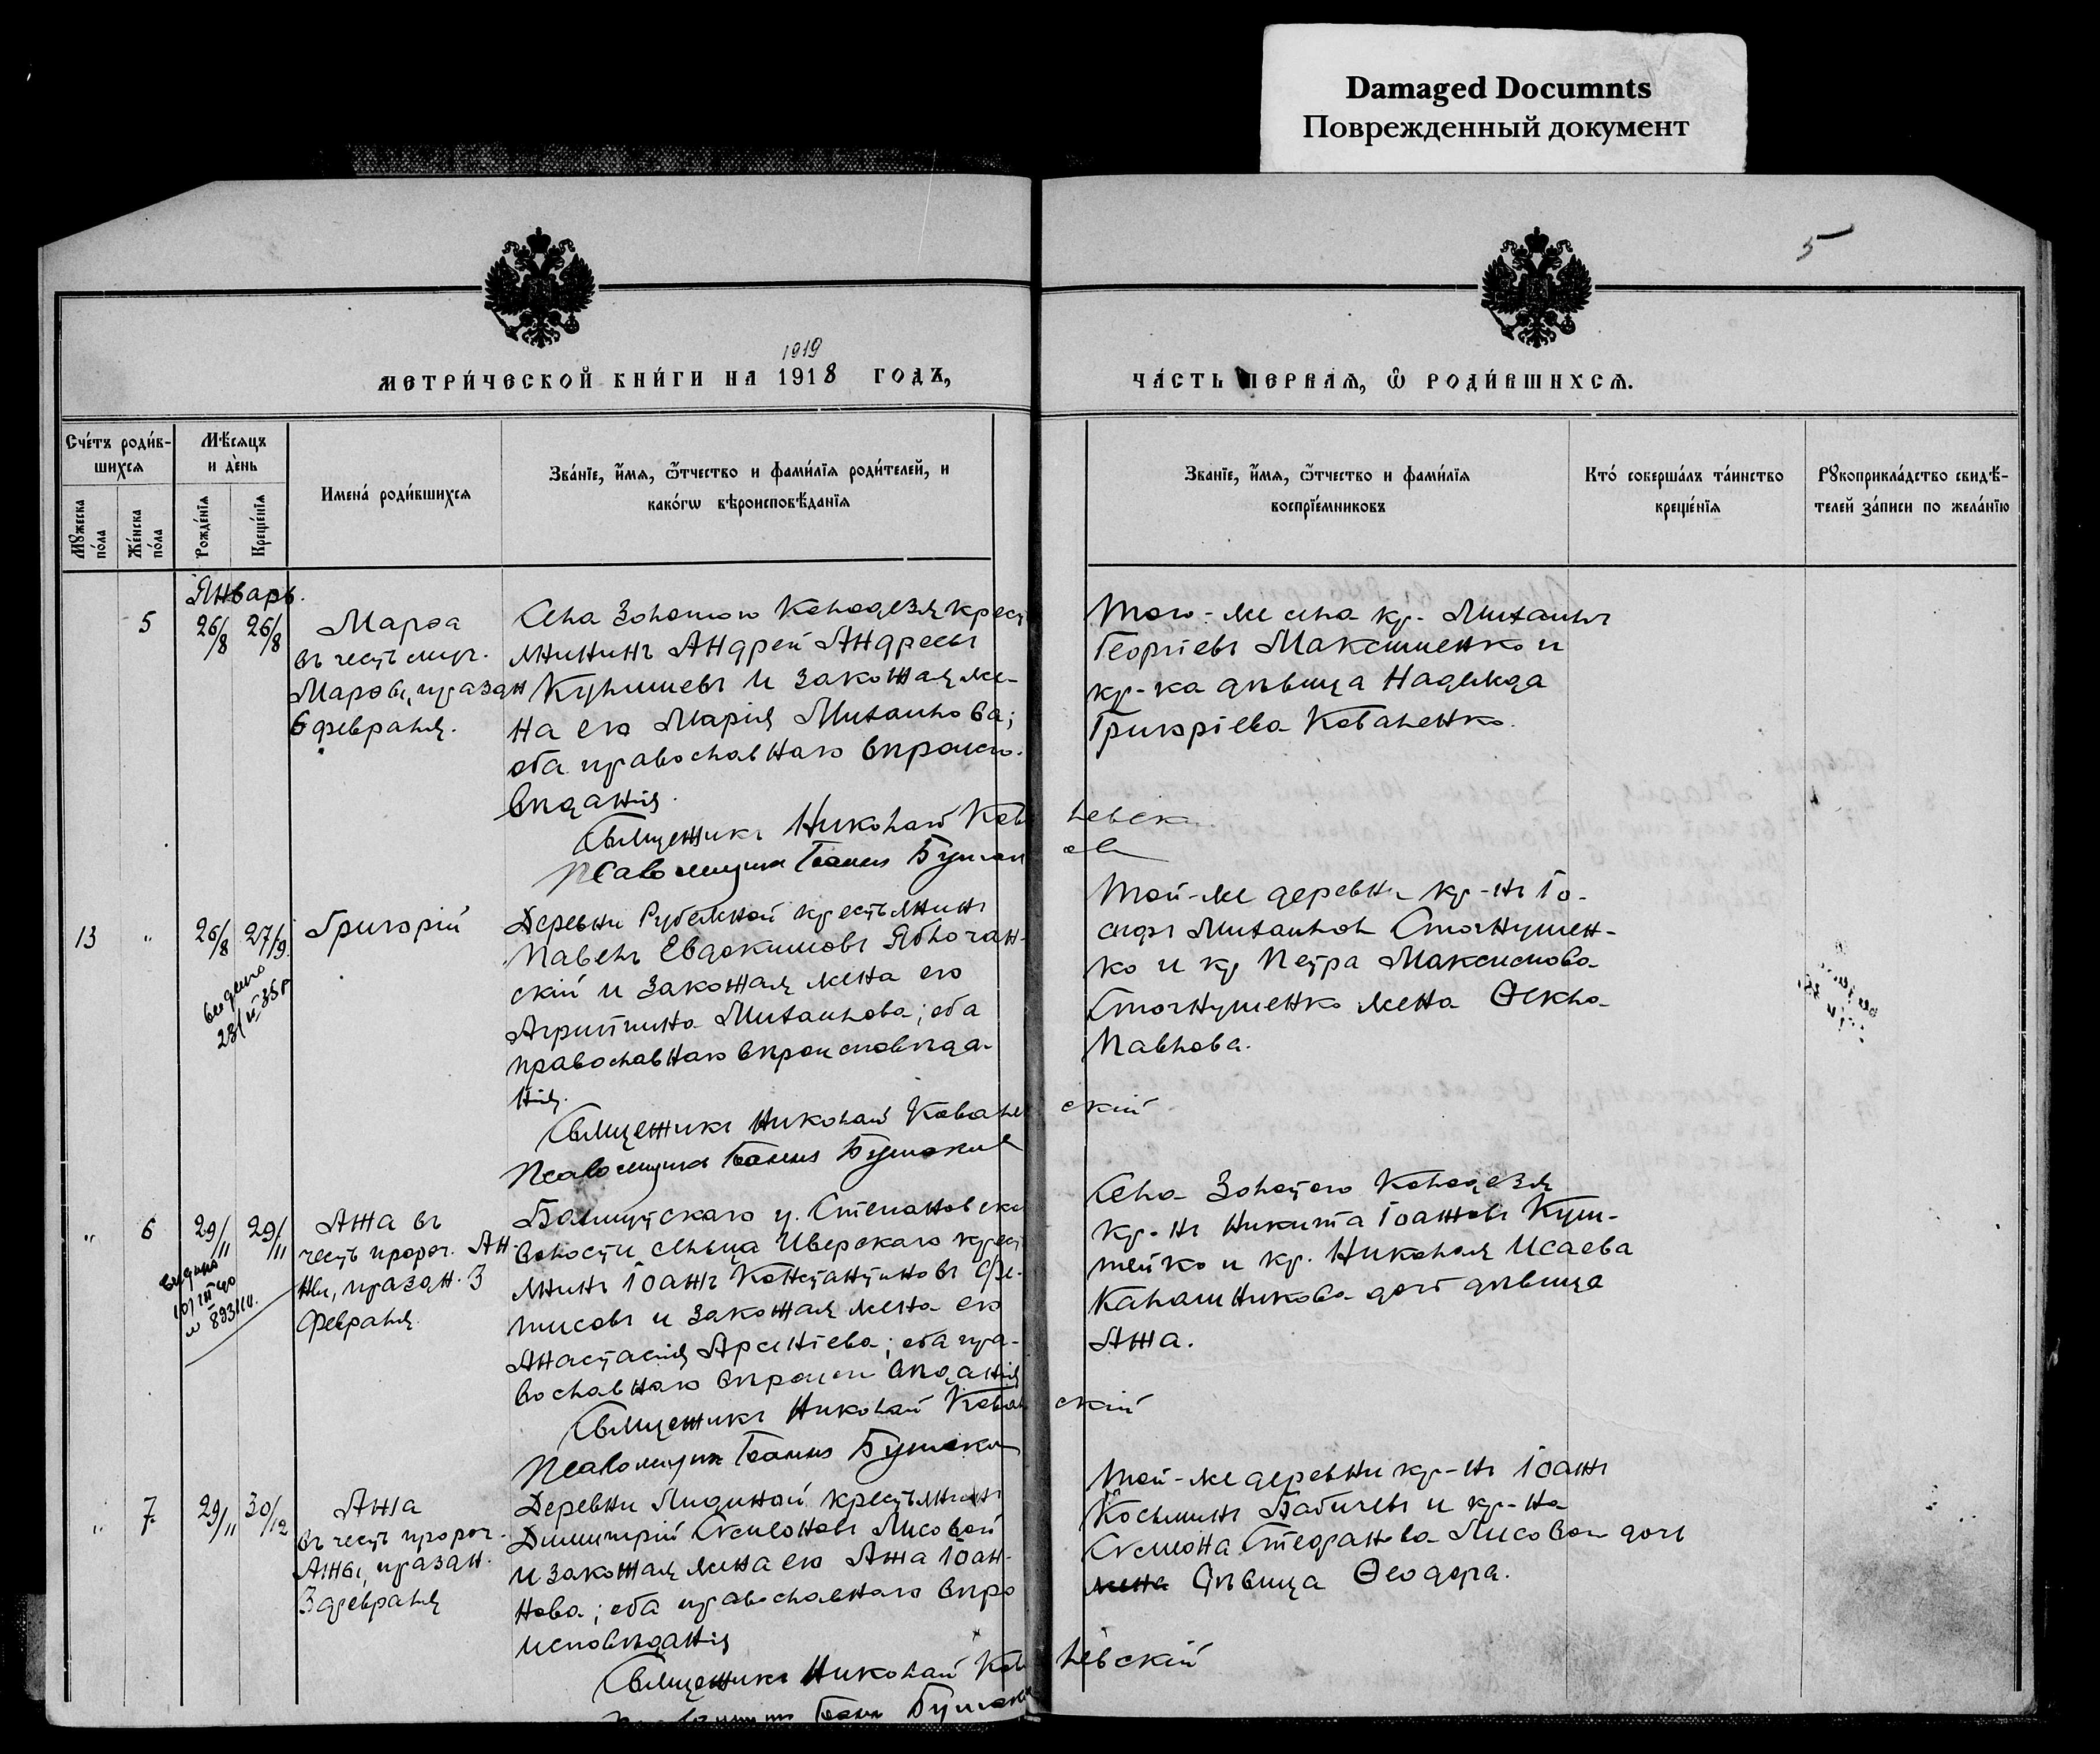 Damaged Documnts
Поврежденный документ
5
1919
МЕТРИ́ЧЕСКОЙ КНИ́ГИ НА 1918 ГОДЪ,
ЧА́СТЬ ПЕРВАѦ, Ѽ РОДИ́ВШИХСѦ.
Сче́тъ роди́в-
шихсѧ
Мꙋ́жеска
по́ла
Же́нска
по́ла
Мѣ́сѧцъ
и де́нь
Рожде́нїѧ
Креще́нїѧ
Имена́ роди́вшихсѧ
Зва́нїе, и́мѧ, ѻ҆́тчество и фами́лїѧ роди́телей, и
како́гѡ вѣроисповѣ́данїѧ
Зва́нїе, и́мѧ, ѻ҆́тчество и фами́лїѧ
воспрїе́мниковъ
Кто́ соверша́лъ та́инство
креще́нїѧ
Рꙋкоприкла́дство свидѣ́-
телей за́писи по жела́нїю
Январь.
5 26/8 26/8
Марѳа
въ честь мүч.
Марѳы, празд н
6 февраля.
Села Золотого Колодезя крест
янинъ Андрей Андреевъ
и законная же-
на его Марія Михаилова;
оба православнаго вѣроиспо-
вѣданія.
Священникъ Николай Ковалевск
Псаломщикъ Іоаннъ
Того-же села кр. Михаилъ
Георгіевъ Максименко и
кр-ка дѣвица Надежда
Григоріева Коваленко.
13 " 26/8 27/9.
видано
23/II 35 р
Григорій
Деревни Рубежной крестьянинъ
Павелъ Евдокимовъ Яблочан-
скій и законная жена его
Агриппина Михаилова; оба
православнаго вѣроисповѣда-
нія.
Священникъ Николай Ковалевскій
Псаломщикъ Іоаннъ
Той-же деревни кр-нъ Іо-
сифъ Михаиловъ Стогнушен-
ко и кр Петра Максимова
Стогнушенко жена Ѳекла
Павлова.
" 6 29/11 29/11
видано
10/III 40
Анна въ
честь пророч. Ан-
ны, праздн. 3
февраля.
Бахмутскаго у. Степановской
волости сельца Иверскаго крест
янинъ Іоаннъ Константиновъ Фе-
тисовъ и законная жена его
Анастасія Арсеніева; оба пра-
вославнаго вѣроисповѣданія
Священникъ Николай Ковалевскій
Псаломщикъ Іоаннъ
Села Золотого Колодезя
кр-нъ Никита Іоанновъ Куш-
тейко и кр. Николая Исаева
Калашникова дочь дѣвица
Анна.
" 7. 29/11 30/12
Анна
въ честь пророч.
Анны, праздн.
3 февраля
Деревни Лидиной крестьянинъ
Димитрій Симеоновъ Лисовой
и законная жена его Анна Іоан-
нова; оба православнаго вѣро
исповѣданія
Священникъ Николай Ковалевскій
Псаломщикъ Іоаннъ
Той-же деревни кр-нъ Іоаннъ
Косьминъ Бабичевъ и кр-на
Симеона Стефанова Лисовой дочь
жена дѣвица Ѳеодора.